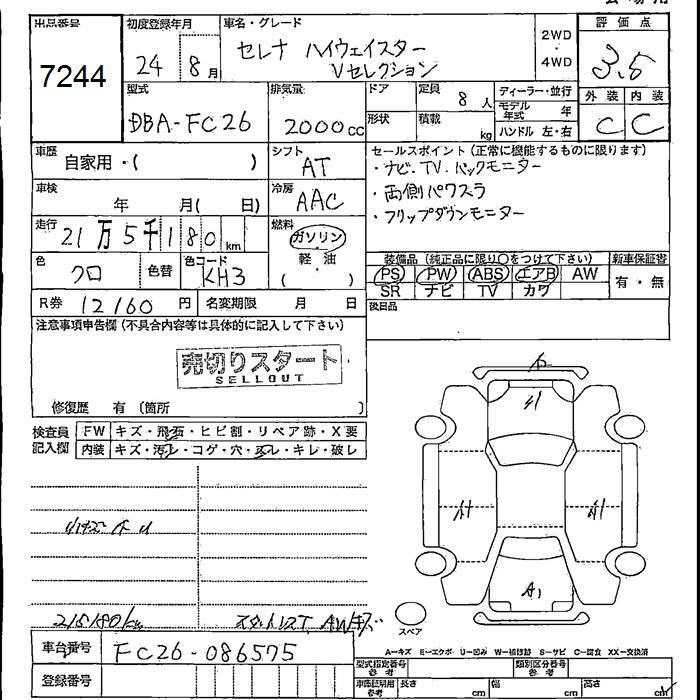 出品番号
7244
初度登録年月
24 8月
車名・グレード
セレナ ハイウェイスター
Vセレクション
2WD
・
4WD
評価点
3.5
型式
DBA-FC26
排気量
2000cc
ドア
形状
定員 8人
積載 kg
ディーラー・並行
モデル年式 年
ハンドル 左・右
外装 内装
C C
車歴
自家用・( )
シフト
AT
セールスポイント(正常に機能するものに限ります)
・ナビ.TV.バックモニター
・両側パワスラ
・フリップダウンモニター
車検
年 月( 日)
冷房
AAC
走行
21万5千180km
燃料
ガソリン
軽・油
( )
色
クロ
色替
色コード
KH3
装備品(純正品に限り○をつけて下さい)
PS PW ABS エアB AW
SR ナビ TV カワ
新車保証書
有・無
R券 12160円
名変期限 月 日
後日品
注意事項申告欄(不具合内容等は具体的に記入して下さい)
売切りスタート
SELLOUT
修復歴 有(箇所 )
検査員記入欄
FW キズ・飛石・ヒビ割・リペア跡・X要
内装 キズ・汚レ・コゲ・穴・スレ・キレ・破レ
A1
215180km
スタットレスT AWキズ
スペア
A=キズ E=エクボ U=凹み W=補修跡 S=サビ C=腐食 XX=交換済
車台番号
FC26-086575
登録番号
型式指定番号
参考
類別区分番号
参考
車体証明用
参考
長さ cm
幅 cm
高さ cm